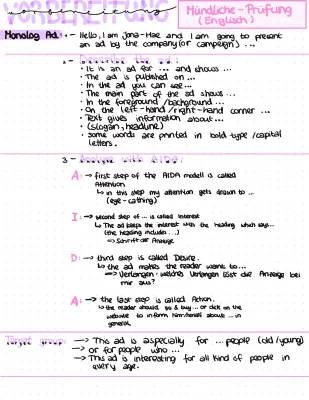 VORBEREITUNG
Mündliche-Prüfung
(Englisch)
Monolog Ad: 1 - Hello, I am Jona-Mae and I am going to present
an ad by the company (or campaign) ...
2 - Describe the ad:
· It is an ad for ... and shows ...
· The ad is published on ...
· In the ad you can see...
· The main part of the ad shows ...
· In the foreground /background ...
· On the left-hand /right-hand corner ...
· Text gives information about...
· (slogan, headline)
· Some words are printed in bold type /capital
letters.
3 - Analyse with AIDA:
A: → first step of the AIDA modell is called
Attention
↳ in this step my attention gets drawn to ...
(eye-cathing)
I: → second step of ... is called Interest
↳ The ad keeps the interest with the heading which says...
(the heading includes...)
=> Schrift der Anzeige
D: → third step is called Desire.
↳ the ad makes the reader want to...
=> Verlangen - welches Verlangen löst die Anzeige bei
mir aus?
A: → the last step is called Action.
↳ the reader should go & buy... or click on the
website to inform him/herself above ... in
general
Target group: → This ad is especially for ... people (old/young)
→ or for people who ...
→ This ad is interesting for all kind of people in
every age.